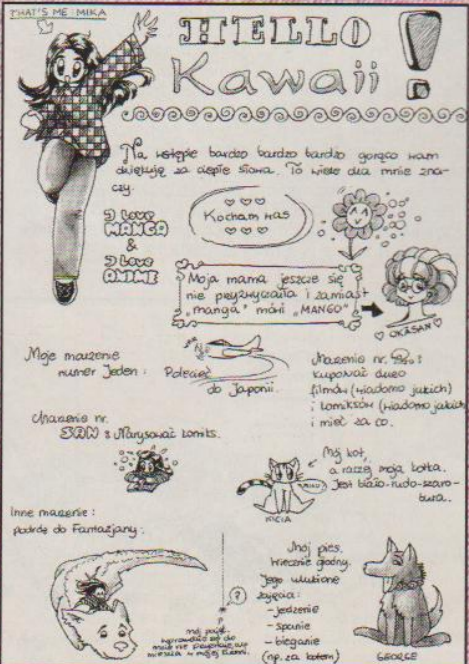 THAT'S ME: MIKA
HELLO !
Kawaii
Na wstępie bardzo bardzo bardzo gorąco wam
dziękuję za ciepłe słowa. To wiele dla mnie zna-
czy.
I Love
MANGA
&
I Love
ANIME
Kocham was
Moja mama jeszcze się
nie przyzwyczaiła i zamiast
„manga" mówi „MANGO"
OKĀSAN
Moje marzenie
numer Jeden: Polecieć
do Japonii.
Marzenie nr. :
kupować dużo
filmów (wiadomo jakich)
i komiksów (wiadomo jakich)
i mieć za co.
Marzenie nr.
SAN : Narysować komiks.
Mój kot,
a raczej moja kotka.
Jest biało-rudo-szaro-
bura.
MIAU
KICIA
Inne marzenie:
podróż do Fantazjany.
?
mój pająk.
wprowadził się do
mieszka w mojej
Mój pies.
Wiecznie głodny.
Jego ulubione
zajęcia:
- jedzenie
- spanie
- bieganie
(np. za kotem)
GEORGE